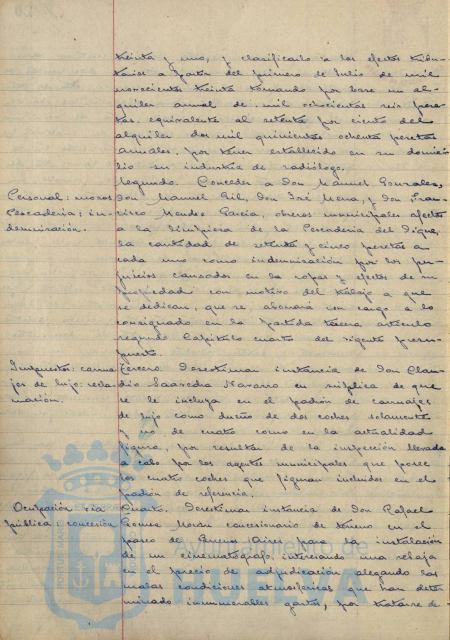 treinta y uno, y clasificarlo a los efectos tribu-
tarios a partir del primero de Julio de mil
novecientos treinta tomando por base un al-
quiler anual de mil ochocientas seis pese-
tas, equivalente al setenta por ciento del
alquiler dos mil quinientas ochenta pesetas
anuales, por tener establecido en su domici-
lio su industria de radiólogo.
Personal: mozos
Pescaderia: in-
demnización.
Segundo. Conceder a Don Manuel Gonzales,
Don Manuel Gil, Don José Mora, y Don Fran-
cisco Mendes Garcia, obreros municipales afectos
a la limpieza de la Pescaderia del Dique,
la cantidad de setenta y cinco pesetas a
cada uno como indemnización por los per-
juicios causados en la ropas y efectos de su
propiedad con motivo del trabajo a que
se dedican, que se abonará con cargo a lo
consignado en la partida tercera articulo
segundo Capitulo cuarto del vigente presu-
puesto.
Impuestos: carrua-
jes de lujo: recla-
mación.
Tercero. Desestimar instancia de Don Clau-
dio Saavedra Navarro en súplica de que
se le incluya en el padrón de carruajes
de lujo como dueño de dos coches solamente
y no de cuatro como en la actualidad
figura, por resultar de la inspección llevada
a cabo por los agentes municipales que posee
los cuatro coches que figuran incluidos en el
padrón de referencia.
Ocupación via
pública: concesión
Cuarto. Desestimar instancia de Don Rafael
Gomez Morán concesionario de terreno en el
paseo de Buenos Aires para la instalación
de un cinematógrafo, interesando una rebaja
en el precio de adjudicación alegando las
malas condiciones atmosféricas que han deter-
minado innumerables gastos, por tratarse de
HUELVA